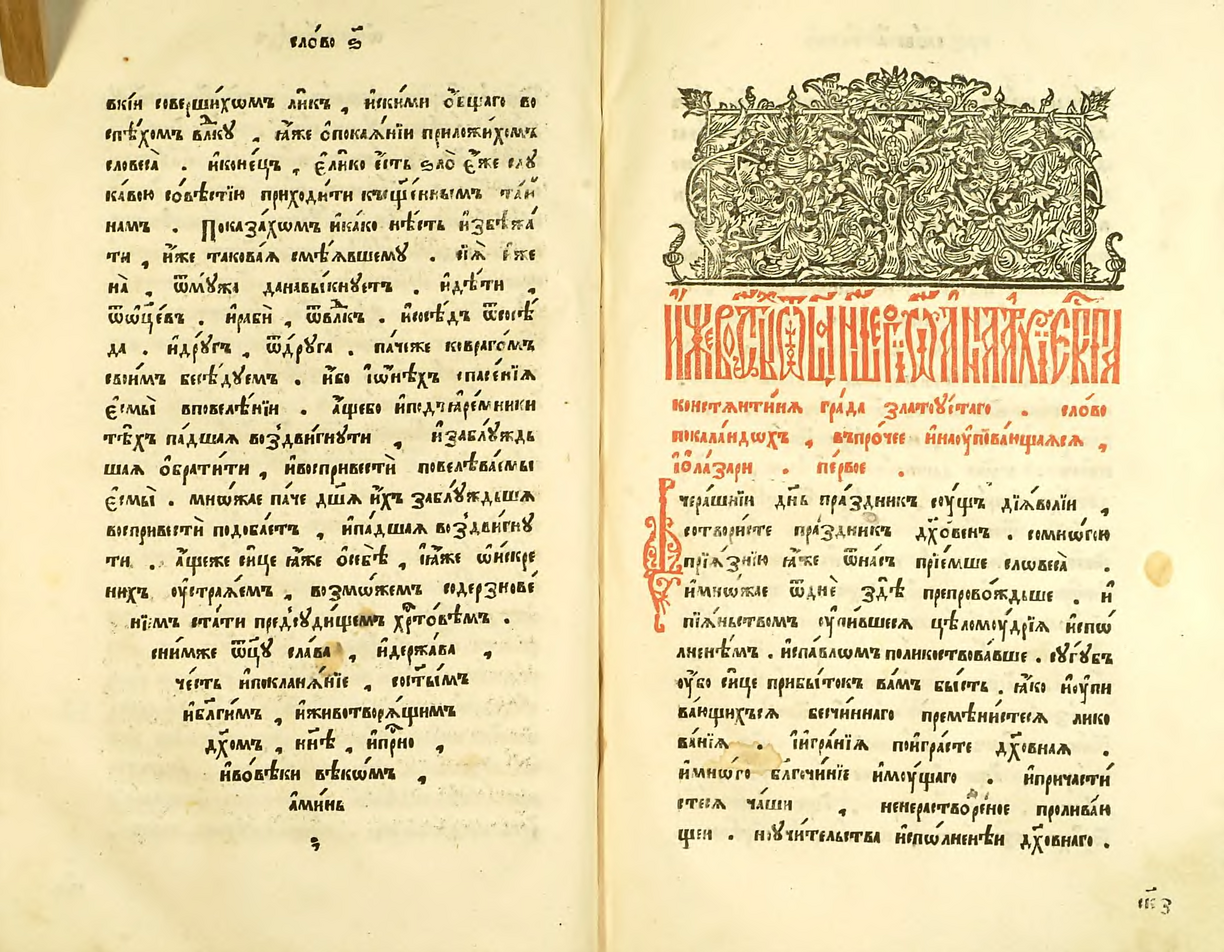 сло́во ѕ҃
вкїи соверши́хѡмъ ли́къ , и҆скими ѻ҆́бщаго во
спѣ́хомъ влⷣку , ꙗ҆́же ѻ҆покаѧ́нїи приложи́хомъ
словеса̀ . и҆коне́цъ , є҆ли́ко є҆́сть ѕло̀ є҆́же слу
ка́вою со́вѣстїю приходи́ти къщ҃е́ннымъ та́й
намъ . Показа́хомъ и҆ка́ко нѣ́сть и҆збѣжа́
ти , и҆́же такова́ѧ смѣ́ѧвшему . сїѧ̀ є҆́же
на̀ , ѿмꙋ́жа данавы́кнꙋетъ . и҆дѣ́ти ,
ѿѻц҃е́въ . и҆рабѝ , ѿвлⷣкъ . и҆сосѣ́дъ ѿсосѣ́
да . и҆дрꙋ́гъ , ѿдрꙋ́га . па́чеже коврагѡ́мъ
свои́мъ бесѣ́дꙋемъ . и҆́бо і҆ѡ҆нѣ́хъ спасе́нїѧ
є҆смы̀ вповелѣ́нїи . а҆́щебо и҆под̾ꙗре́мники
тѣ́хъ па́дшаѧ воздви́гнꙋти , и҆заблꙋ́ждь
шаѧ ѻ҆брати́ти , и҆воспривестѝ повелѣва́емы
є҆смы̀ . мнѡ́жае па́че дш҃а и҆́хъ заблꙋ́ждьшаѧ
воспривестѝ подоба́етъ , и҆па́дшаѧ воздви́гнꙋ
ти . а҆́щеже си́це ꙗ҆́же ѻ҆себѣ̀ , і҆ꙗ҆́же ѡ҆и҆́скре
нихъ ᲂу҆стра́ѧемъ , возмо́жемъ содерзнове́
нїемъ ста́ти предсꙋди́щемъ хрⷭ҇то́вѣмъ .
сни́мже ѿцꙋ̀ сла́ва , и҆держа́ва ,
че́сть и҆покланѧ́нїе , сост҃ы́мъ
и҆бл҃ги́мъ , и҆животворѧ́щимъ
дх҃омъ , нн҃ѣ , и҆при́сно ,
и҆вовѣ́ки вѣкѡ́мъ ,
а҆ми́нь
констѧнти́нѧ гра́да златоꙋ́стаго . сло́во
і҆ѻ҆ла́зари . пе́рвое .
Вчера́шнїи дн҃ь пра́здникъ сꙋ́щъ дїѧ́волїи ,
сотвори́сте пра́здникъ дх҃о́венъ . сомно́гою
прїѧ́знїю ꙗ҆́же ѿна́съ прїе́мше словеса̀ .
и҆мнѡ́жае ѿднѐ здѣ̀ препрово́ждьше . и҆
пїѧ́ньствомъ ᲂу҆пи́вшесѧ цѣломꙋ́дрїѧ и҆спо
лненѣ́мъ . и҆спа́вломъ поликоствова́вше . сꙋгꙋ́бъ
ᲂу҆́бо си́це прибы́токъ ва́мъ бы́сть . ꙗ҆́ко и҆ᲂу҆пи
ва́ющихъсѧ бесчи́ннаго премѣни́стесѧ лико
ва́нїѧ . і҆игра́нїѧ поигра́сте дх҃о́внаѧ .
и҆мно́гѡ благочи́нїе и҆мꙋ́щаго . и҆причасти́
стесѧ ча́ши , ненераство́реное пролива́ю
щеи . и҆ᲂу҆чи́тельства и҆спо́лненѣи дх҃о́внаго .